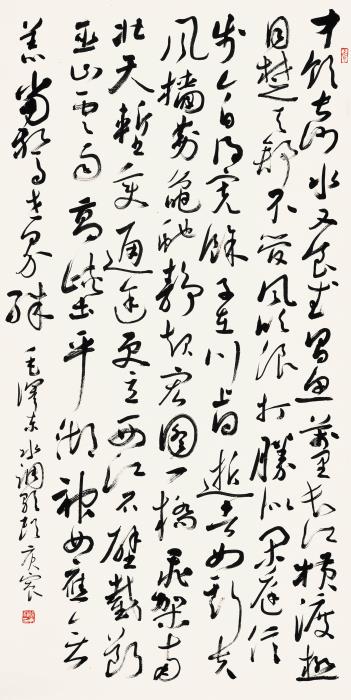 才饮长沙水又食武昌鱼万里长江横渡极
目楚天舒不管风吹浪打胜似闲庭信
步今日得宽余子在川上曰逝者如斯夫
风樯动龟蛇静起宏图一桥飞架南
北天堑变通途更立西江石壁截断
巫山云雨高峡出平湖神女应无
恙当惊世界殊
毛泽东水调歌头庚寅